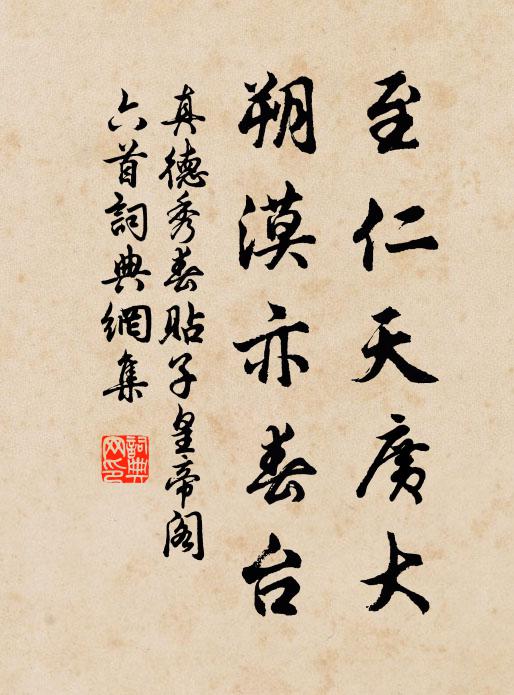 至仁天廣大
朔漠亦春台
真德秀春貼子皇帝阁
六首詞典網集
詞典网印